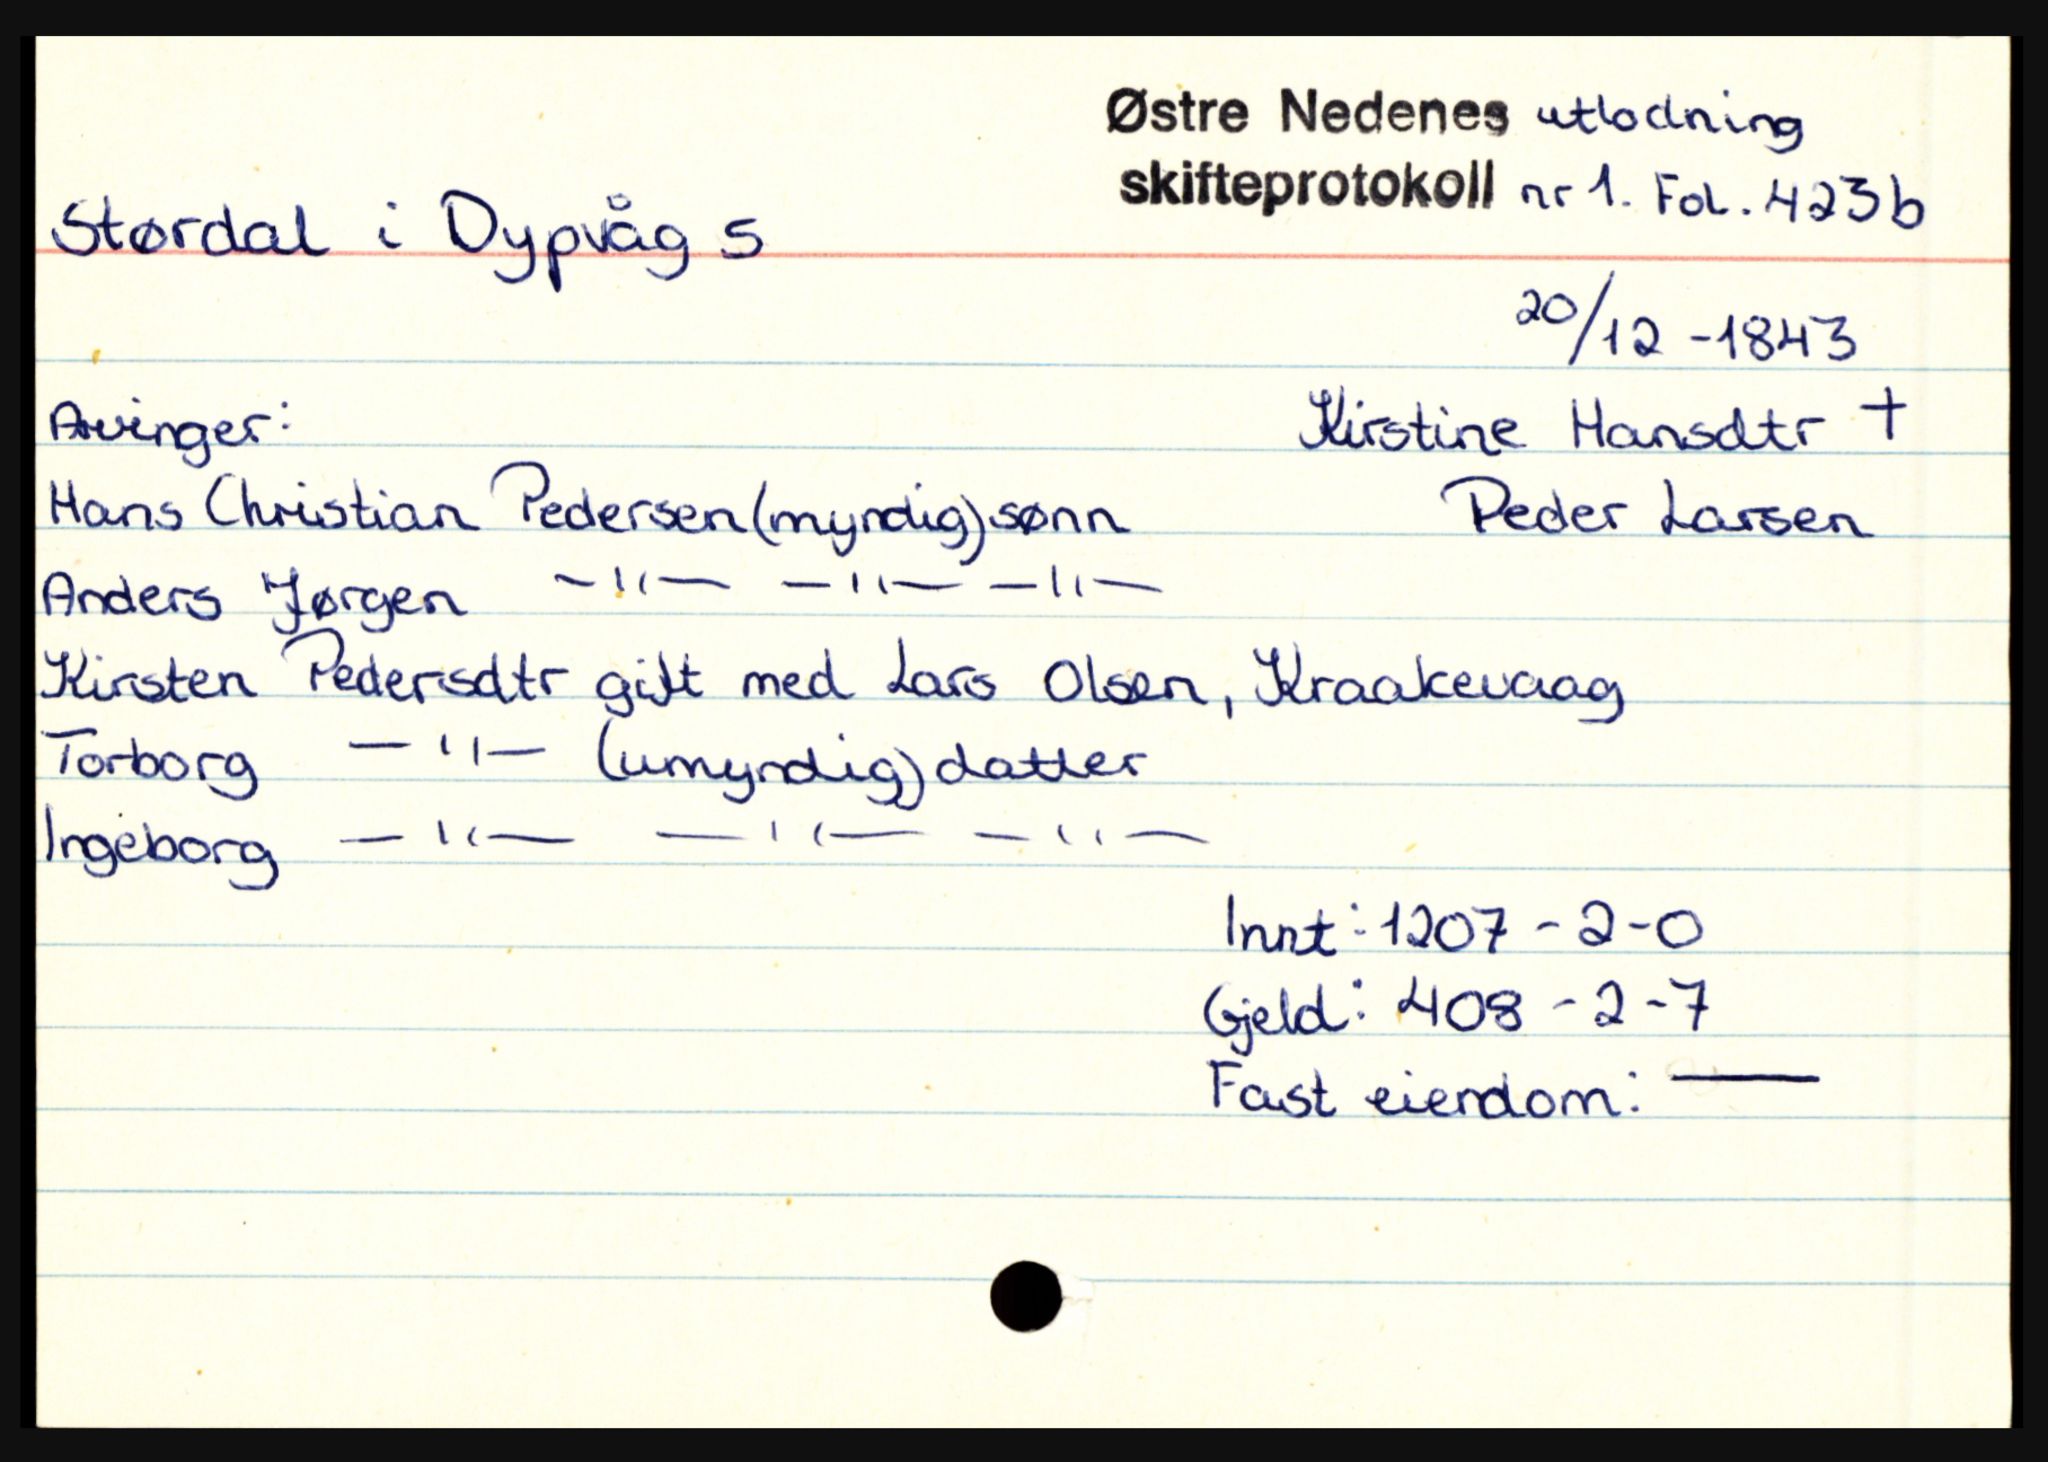 Østre Nedenes utlodning
skifteprotokoll nr 1. Fol. 423b
Størdal i Dypvåg s
20/12 -1843
Arvinger:
Kirstine Hansdtr †
Hans Christian Pedersen (myndig) sønn
Peder Larsen
Anders Jørgen —"— —"— —"—
Kirsten Pedersdtr gift med Lars Olsen, Kraakevaag
Torborg —"— (umyndig) datter
Ingeborg —"— —"— —"—
Innt: 1207 - 2 - 0
Gjeld: 408 - 2 - 7
Fast eiendom: —